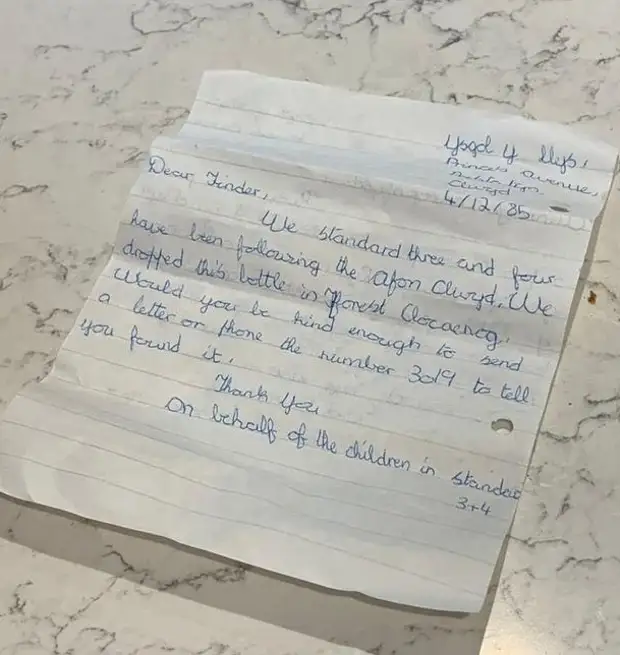 Ysgol Y Llys,
Princes avenue,
Clwyd
4/12/85
Dear Finder,
We standard three and four
have been following the afon Clwyd. We
dropped this bottle in Fforest Clocaenog.
Would you be kind enough to send
a letter or phone the number 3019 to tell
you found it.
Thank you
On behalf of the children in standard
3+4